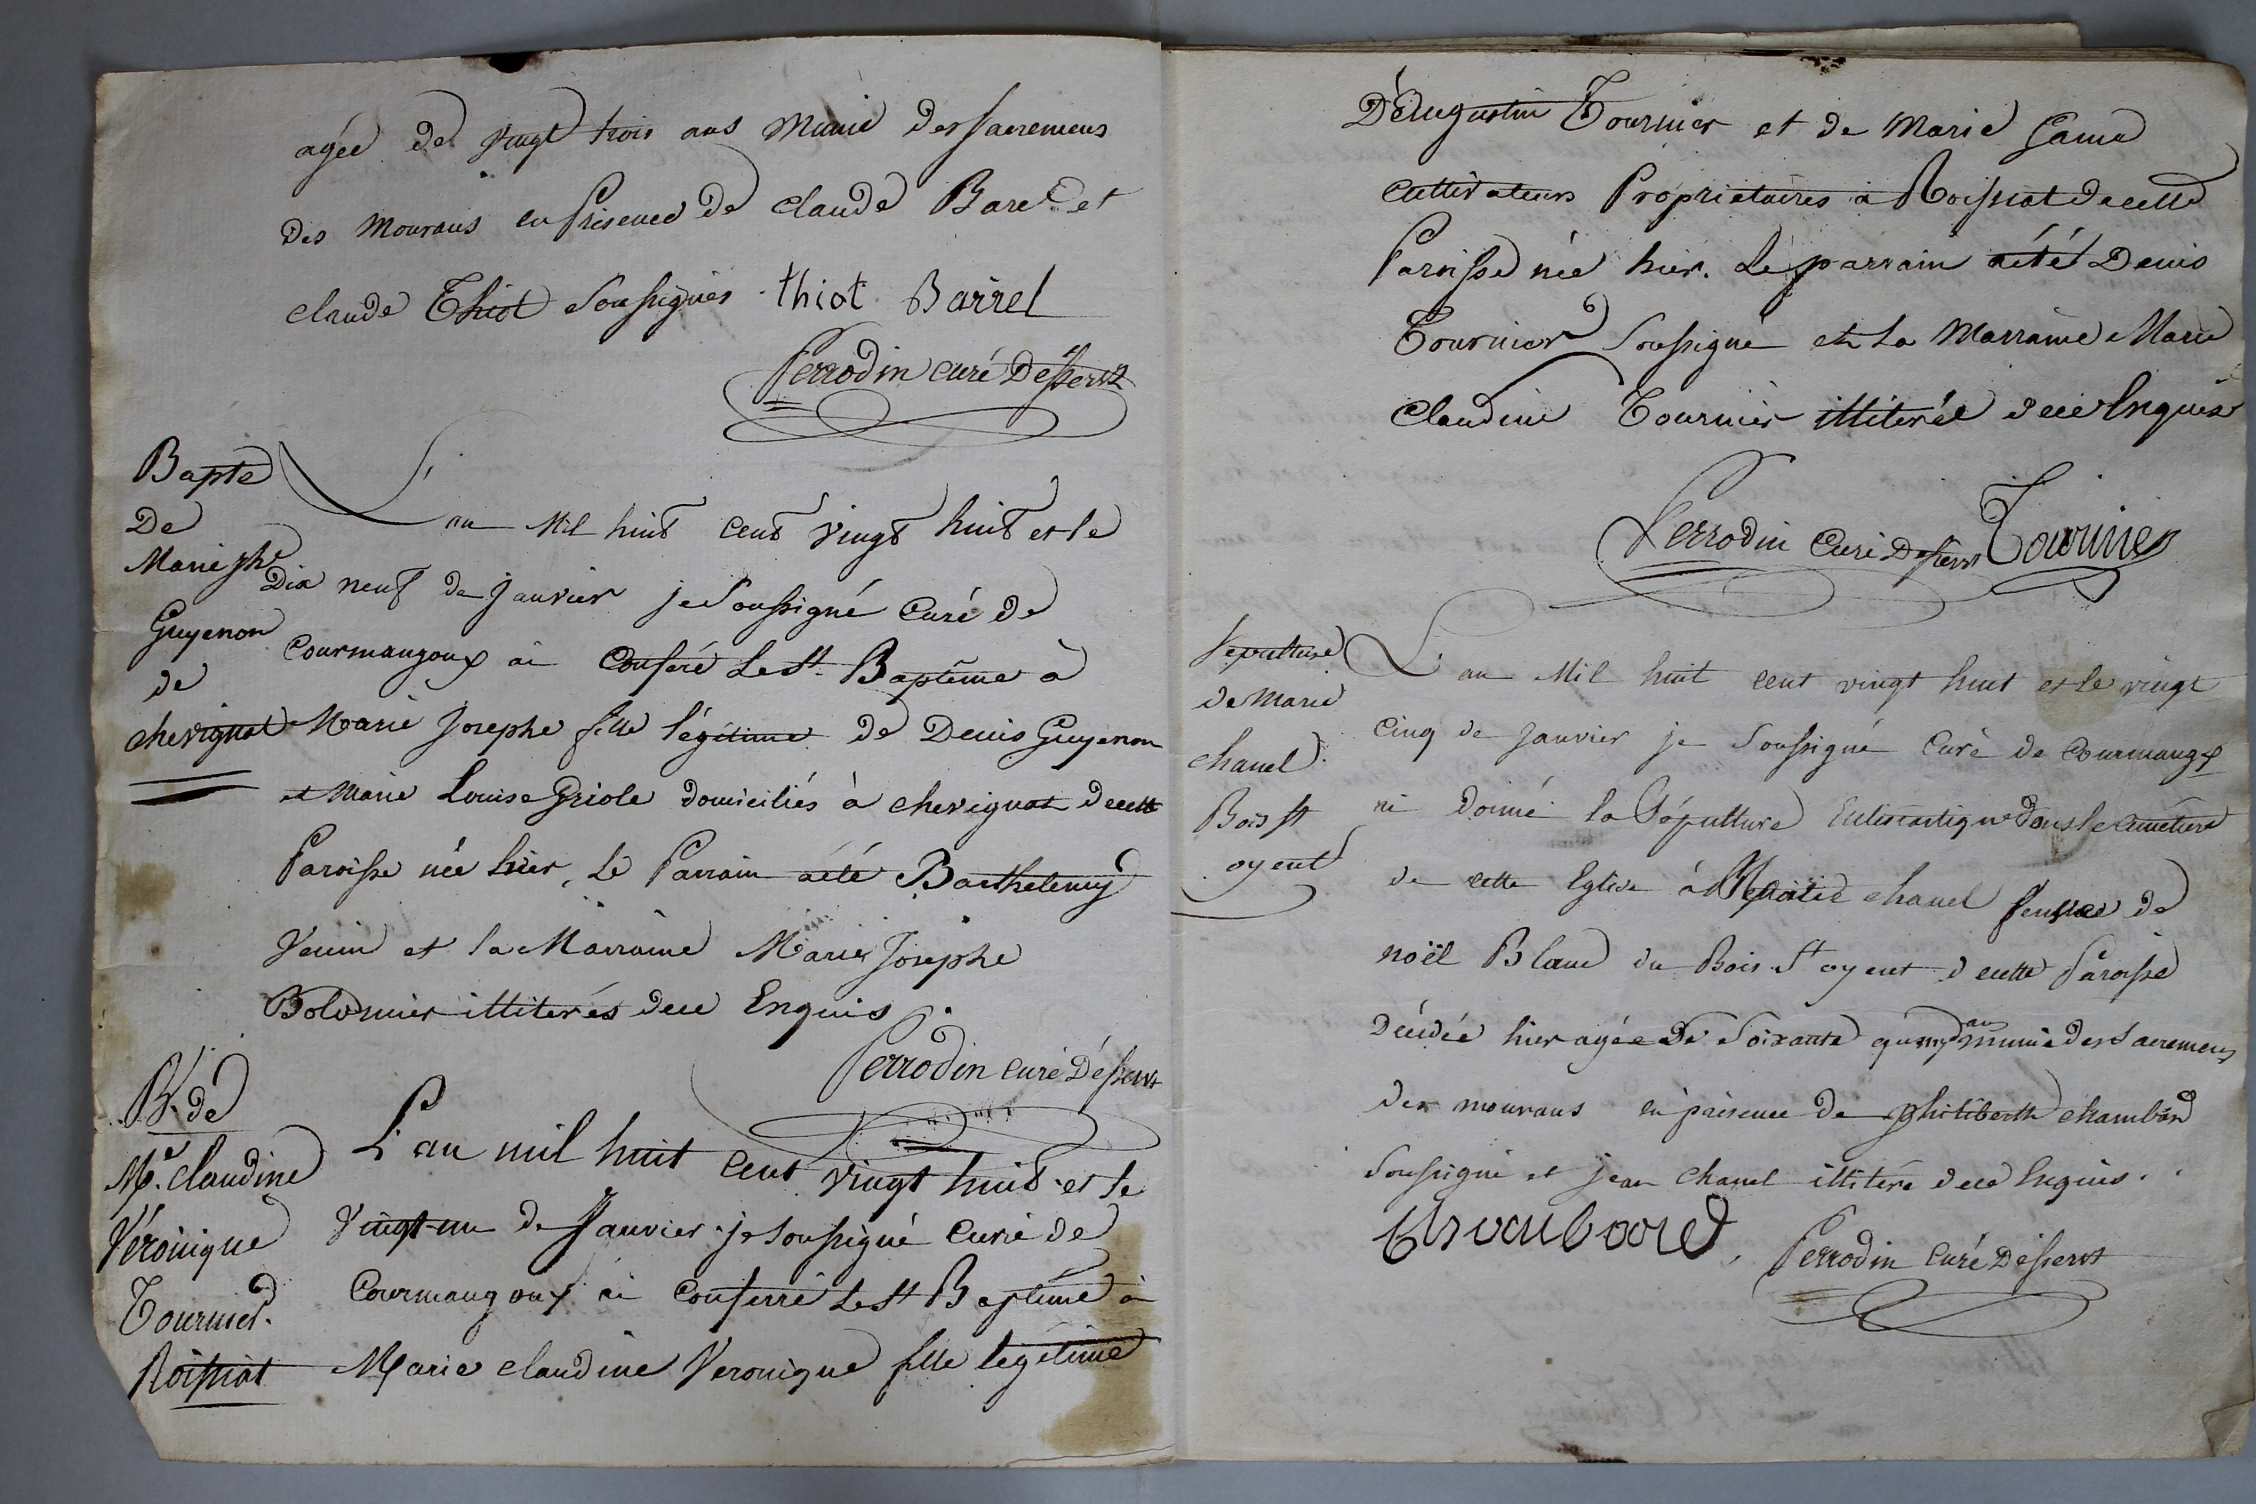 agée de vingt trois ans munie des sacremens
des mourans en présence de claude Barel et
claude Thiot soussignés thiot Barrel
Perrodin curé Desservt
Bapte
De
Marie jphe
Guyenon
de
chevignat
L'an Mil huit cent vingt huit et le
Dix neuf de janvier je soussigné Curé de
Courmangoux ai Conferé Le St Baptême à
Marie Josephe fille légitime de Denis Guyenon
et Marie Louise Griole domiciliés à chevignat decette
Paroisse née hier, Le Parrain aété Barthelemy
Venin et la Marraine Marie Josephe
Bolomier illiterés dece Enquis
Perrodin curé Désservt
Bt de
Me. claudine
Véronique
Tournier.
Roissiat
L'an mil huit cent vingt huit et le
Vingt-un de Janvier je soussigné Curé de
Courmangoux ai Conferré Le St Baptême à
Marie claudine Veronique fille légitime
D'Augustin Tournier et de Marie
cultivateurs Propriétaires à Roissiat decette
Paroisse née hier. Le parrain aété Denis
Tournier soussigné et La Marraine Marie
Claudine Tournier illiterée dece Enquise
Perrodin Curé Desservt Tournier
Sepulture
de Marie
chanel
Bois St
oyent
L'an Mil huit cent vingt huit et le vingt
cinq de Janvier je soussigné Curé de Courmangx
ai donné la Sépulture Eclésiastique dans le cimétiere
de cette Eglise à Marie chanel femme de
noël Blanc du Bois St oyent decette Paroisse
Décédée hier agée De Soixante quinze ans munie des Sacremens
des mourans en présence de philiberth chambard
soussigné et jean chanel illitéré dece Enquis.
Chambard, Perrodin Curé Désservt